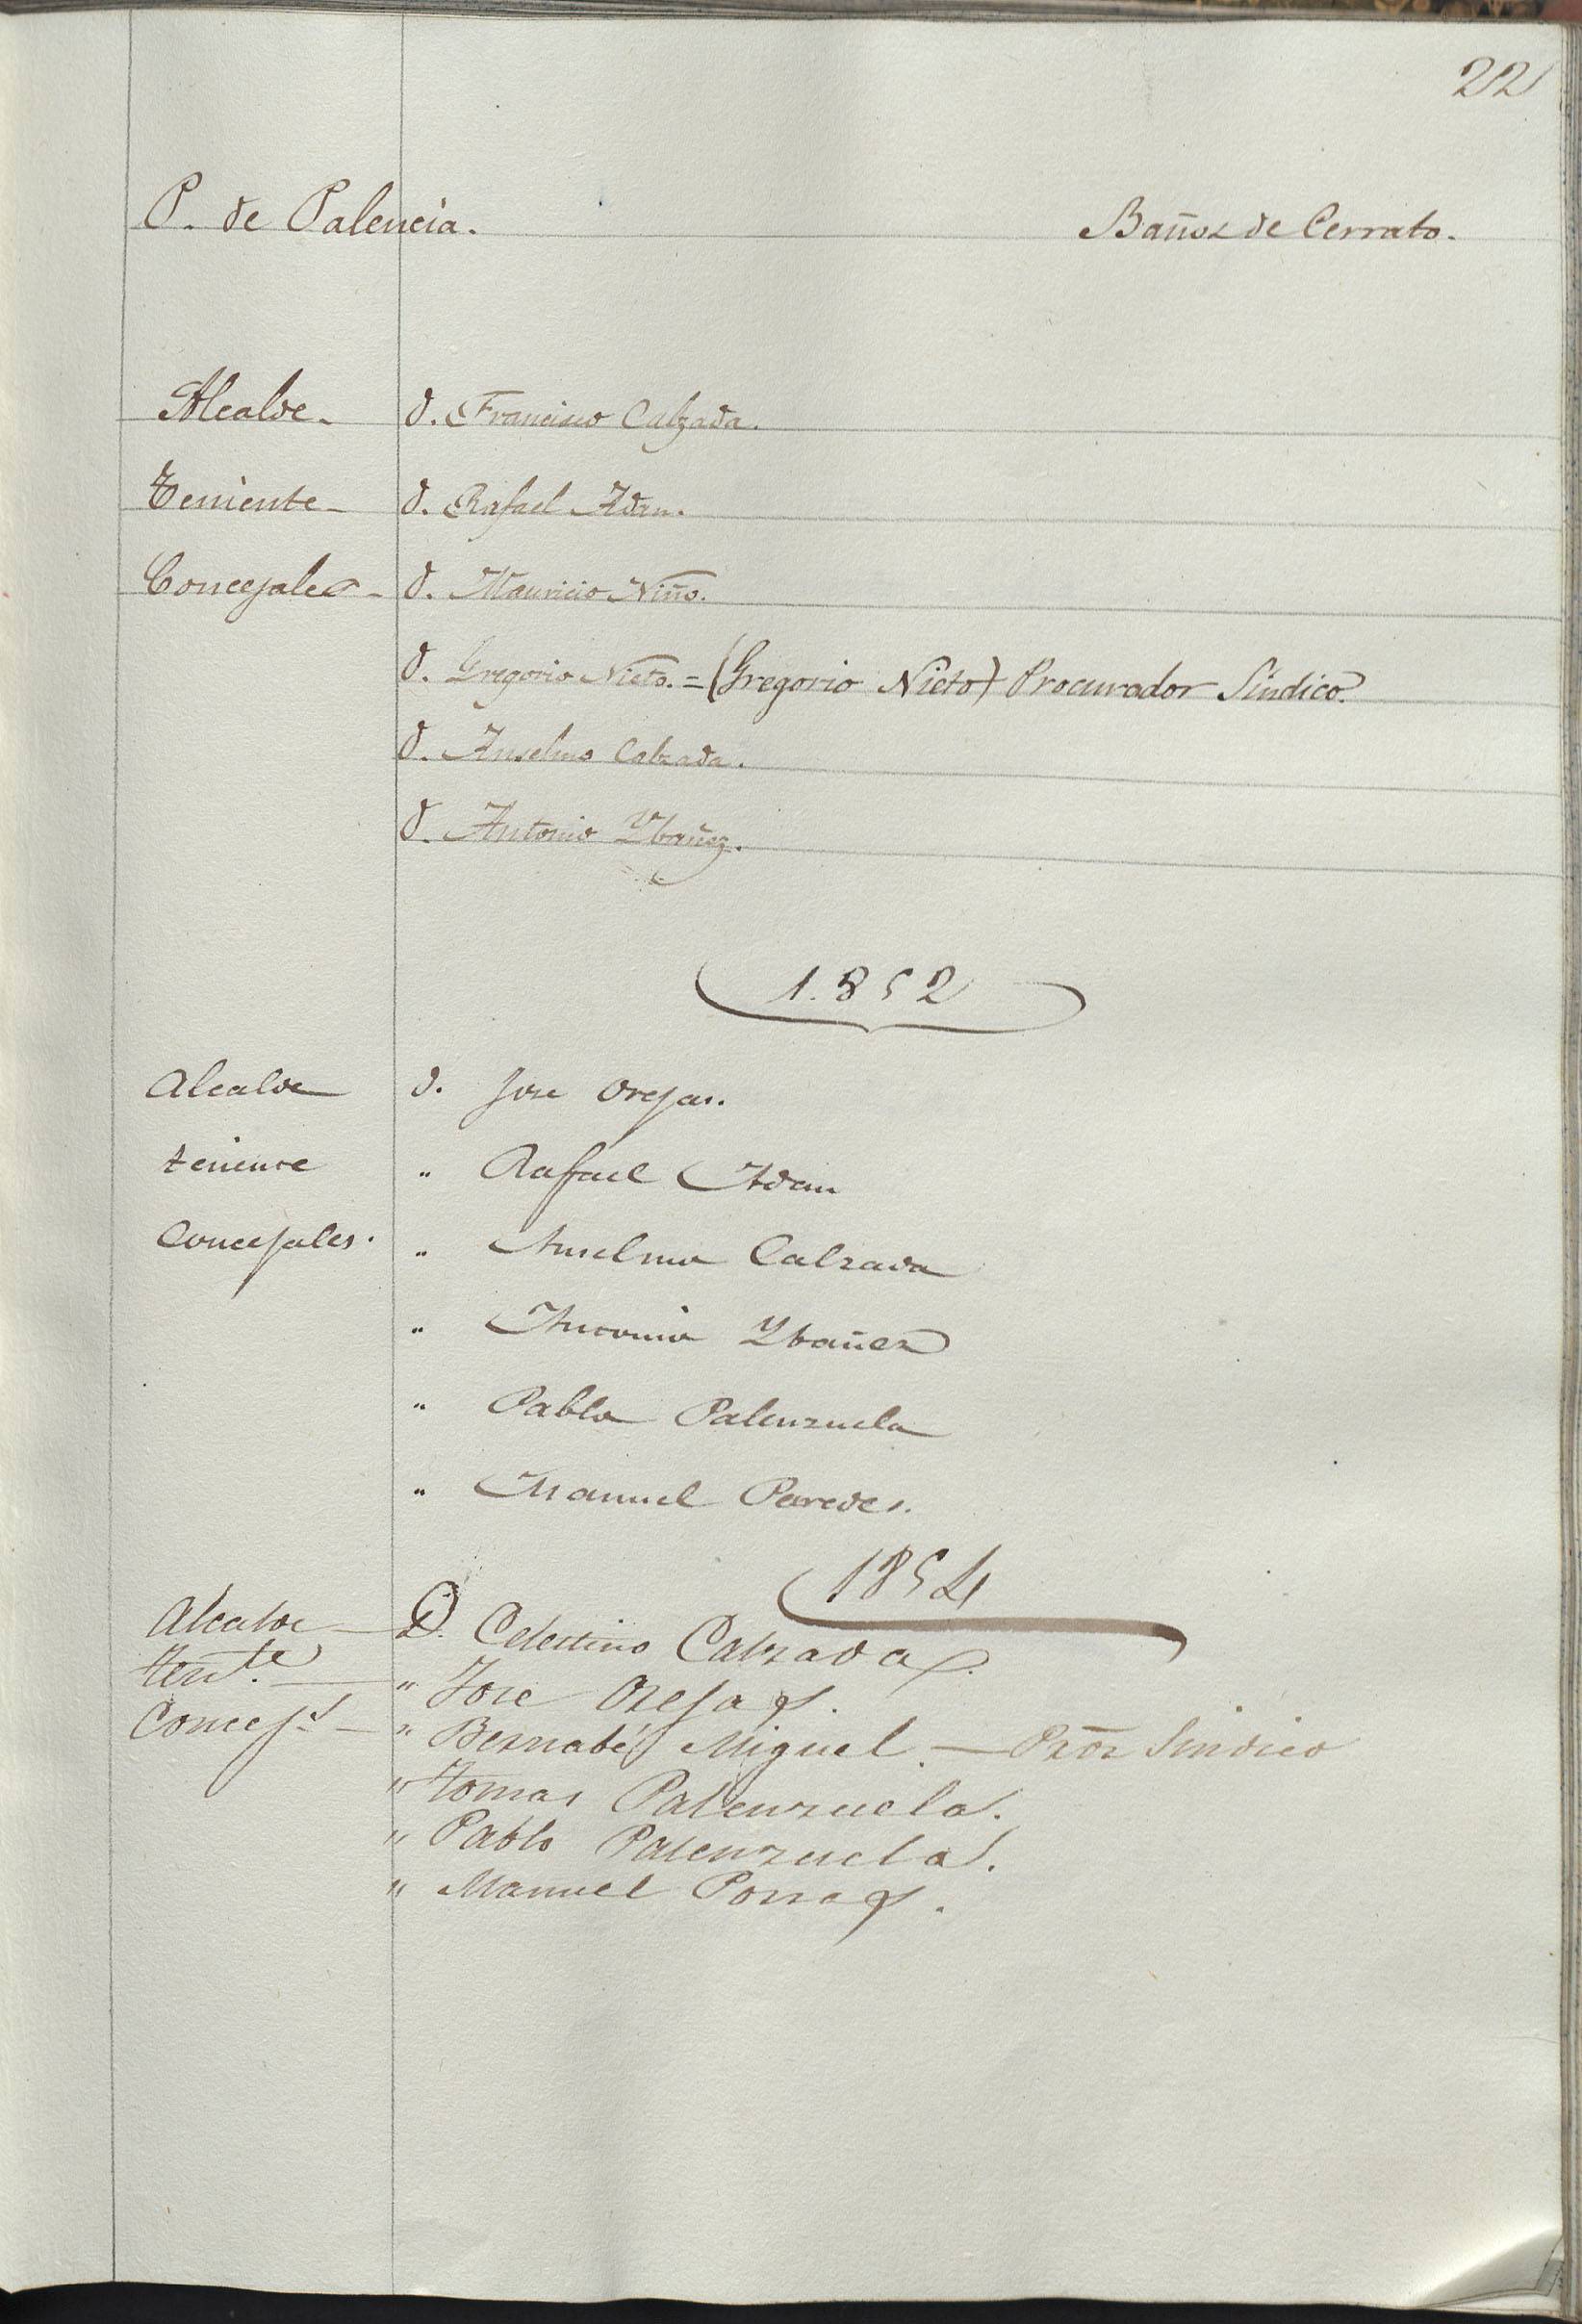 22
P. de Palencia. Baños de Cerrato.
Alcalde - D. Francisco Calzada.
Teniente - D. Rafael Adan.
Concejales - D. Mauricio Niño.
D. Gregorio Nieto. = (Gregorio Nieto) Procurador Sindico.
D. Anselmo Calzada.
D. Antonio Ybañez.
1.852
Alcalde D. Jose Orejas.
teniente " Rafael Adan
Concejales. " Anselmo Calzada
" Antonio Ybañez
" Pablo Palenzuela
" Manuel Paredes.
1854
Alcalde - D. Celestino Calzada.
Tente. - " Jose Orejas.
Concejs. - " Bernabé Miguel. - Pror Sindico
" Tomas Palenzuela.
" Pablo Palenzuela.
" Manuel Porras.